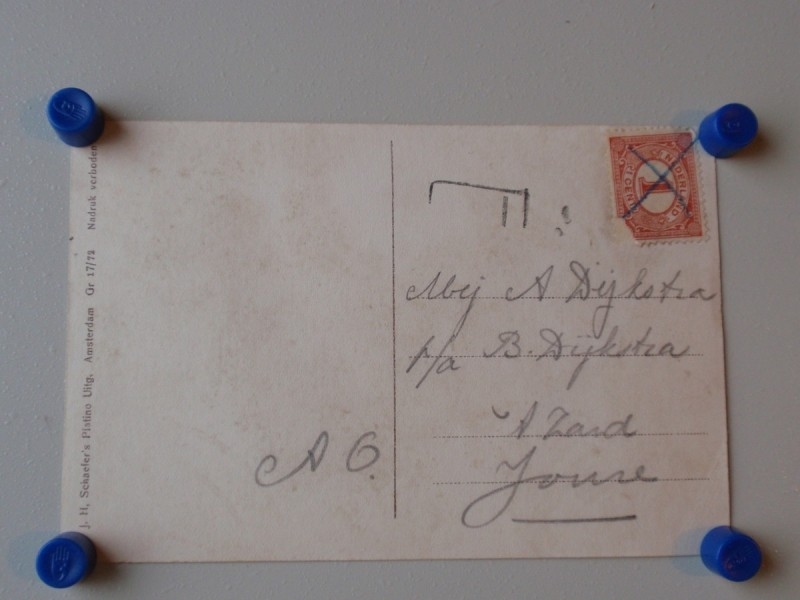 J. H. Schaefer's Platino Uitg. Amsterdam Gr 17/72 Nadruk verboden
NEDERLAND
1
Mej A Dijkstra
p/a B. Dijkstra
'A Zand
Joure
A O.